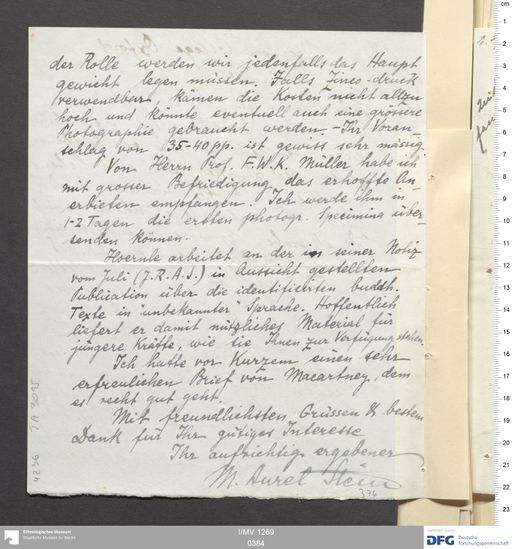 der Rolle werden wir jedenfalls das Haupt
gewicht legen müssen. Falls Zinco-druck
verwendbar, kämen die Kosten nicht allzu
hoch und könnte eventuell auch eine grössere
Photographie gebraucht werden. - Ihr Voran-
schlag von 35-40 pp. ist gewiss sehr mässig.
Von Herrn Prof. F.W.K. Müller habe ich
mit grosser Befriedigung das erhoffte An-
erbieten empfangen. Ich werde ihm in
1-2 Tagen die ersten photogr. Specimina über-
senden können.
Hoernle arbeitet an der in seiner Notiz
vom Juli (J.R.A.S.) in Aussicht gestellten
Publication über die identificirten buddh.
Texte in "unbekannter" Sprache. Hoffentlich
liefert er damit nützliches Material für
jüngere Kräfte, wie sie Ihnen zur Verfügung stehen.
Ich hatte vor Kurzem einen sehr
erfreulichen Brief von Macartney, dem
es recht gut geht.
Mit freundlichsten Grüssen & bestem
Dank für Ihr gütiges Interesse
Ihr aufrichtig ergebener
M. Aurel Stein
376
4236
TA 3095
Ethnologisches Museum
Staatliche Museen zu Berlin
I/MV 1269
0384
Gefördert durch
DFG Deutsche
Forschungsgemeinschaft
cm
1
2
3
4
5
6
7
8
9
10
11
12
13
14
15
16
17
18
19
20
21
22
23